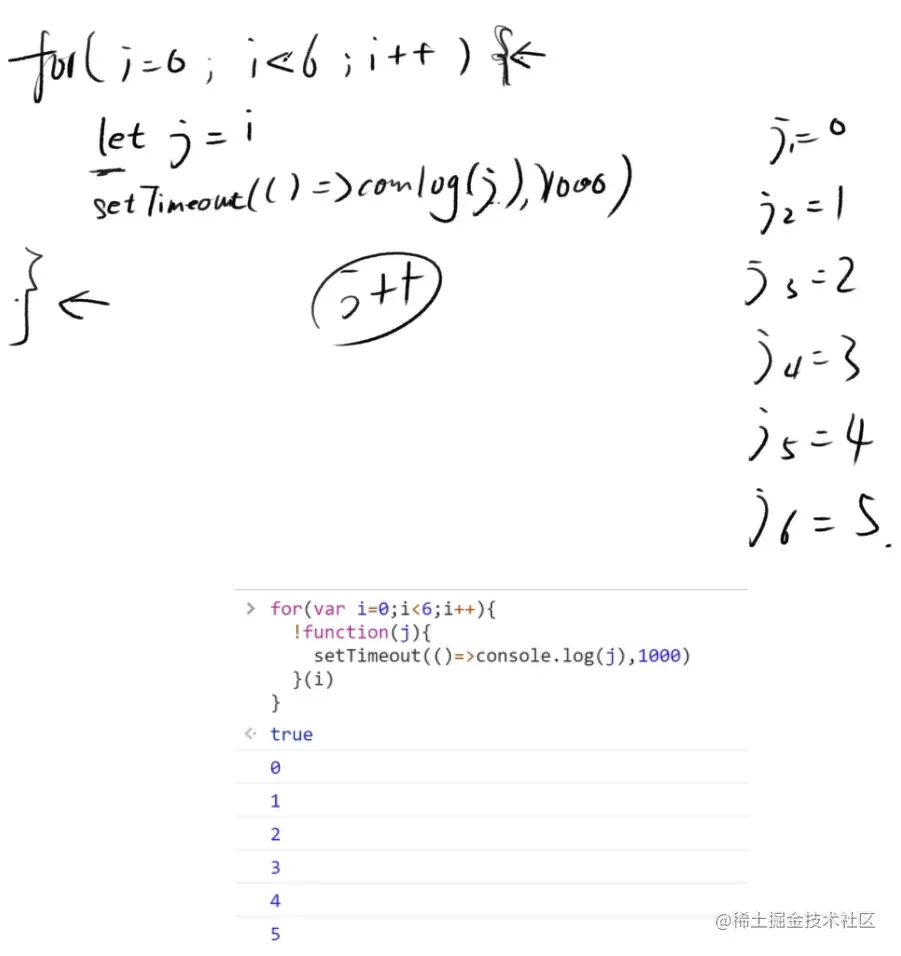 for( i=0 ; i<6 ; i++ ) { ←
let j = i
setTimeout(()=>comlog(j),1000)
} ←
i++
j1=0
j2=1
j3=2
j4=3
j5=4
j6=5.
> for(var i=0;i<6;i++){
!function(j){
setTimeout(()=>console.log(j),1000)
}(i)
}
< true
0
1
2
3
4
5
@稀土掘金技术社区